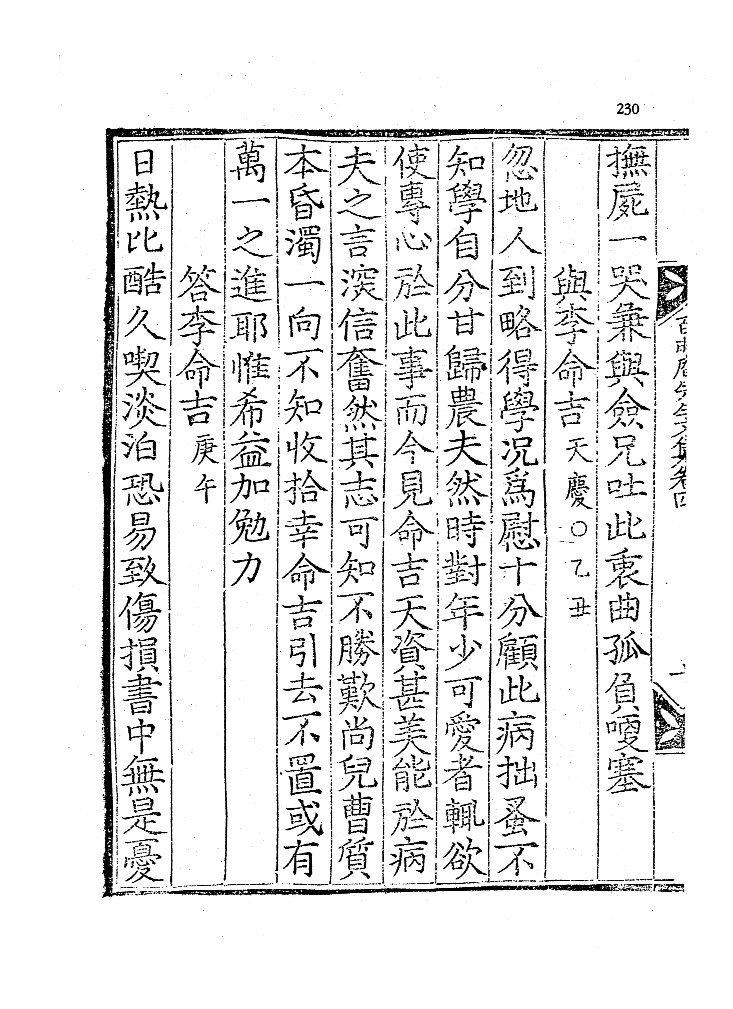 230
撫屍一哭兼與僉兄吐此衷曲孤負哽塞
與李命吉天慶○乙丑
忽地人到略得學况爲慰十分顧此病拙蚤不
知學自分甘歸農夫然時對年少可愛者輒欲
使專心於此事而今見命吉天資甚美能於病
夫之言深信奮然其志可知不勝歎尙兒曹質
本昏濁一向不知收拾幸命吉引去不置或有
萬一之進耶惟希益加勉力
答李命吉庚午
日熱比酷久喫淡泊恐易致傷損書中無是憂